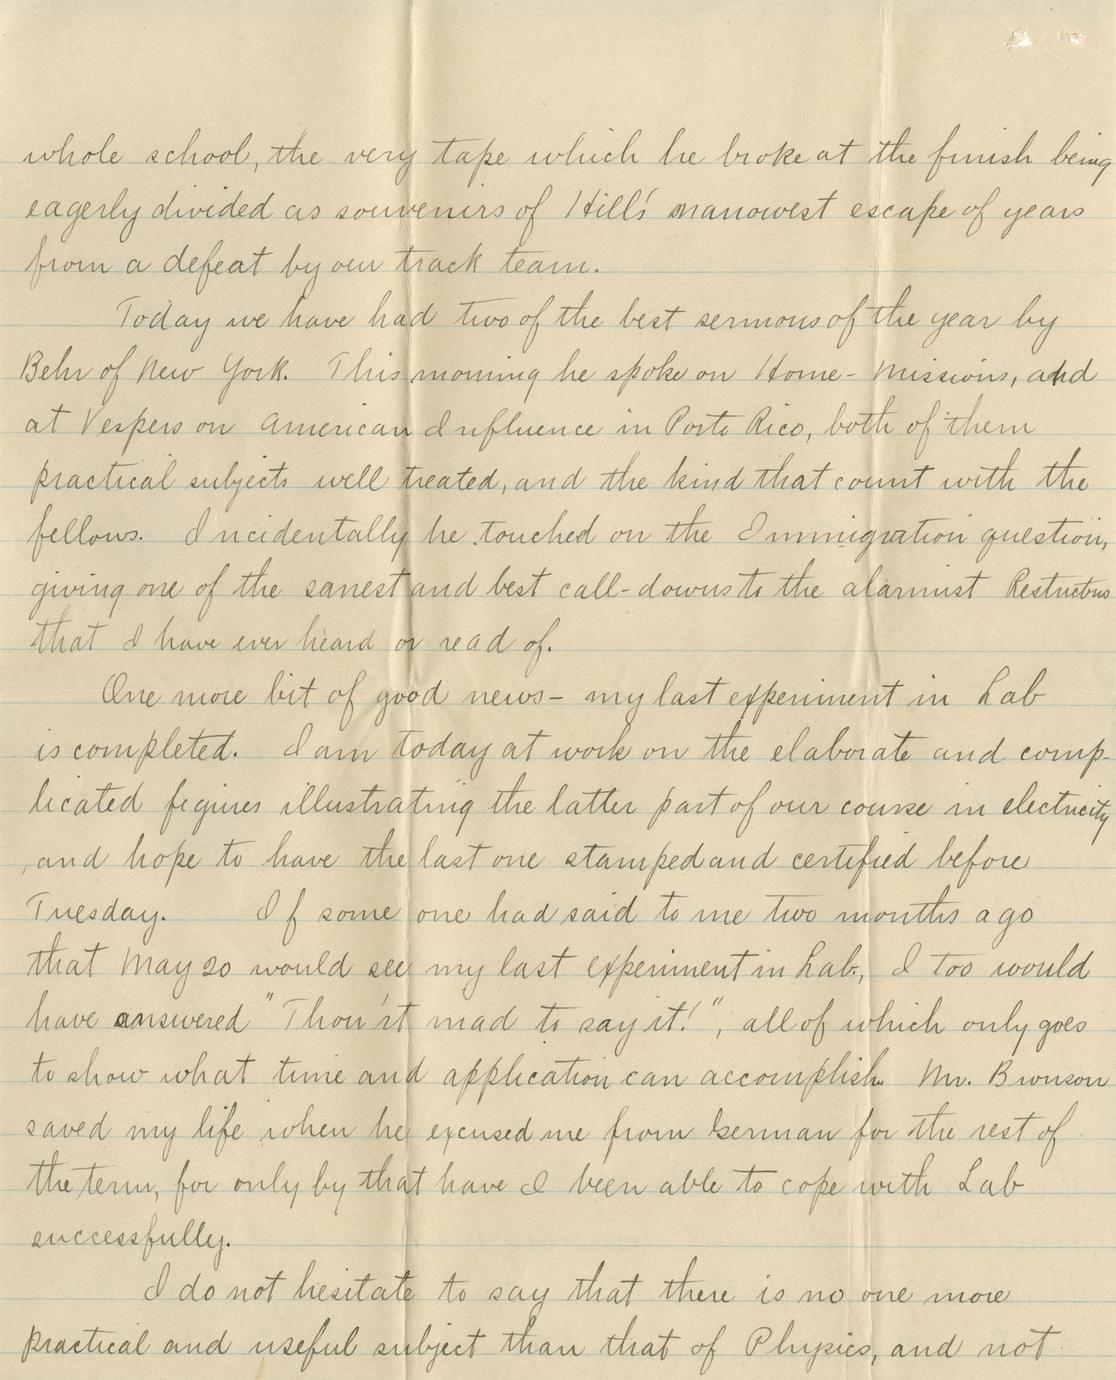 whole school, the very tape which he broke at the finish being
eagerly divided as souvenirs of Hill's narrowest escape of years
from a defeat by our track team.
Today we have had two of the best sermons of the year by
Behr of New York. This morning he spoke on Home-Missions, and
at Vespers on American Influence in Porto Rico, both of them
practical subjects well treated, and the kind that count with the
fellows. Incidentally he touched on the Immigration question,
giving one of the sanest and best call-downs to the alarmist
that I have ever heard or read of.
One more bit of good news - my last experiment in Lab
is completed. I am today at work on the elaborate and comp-
licated figures illustrating the latter part of our course in electricity
, and hope to have the last one stamped and certified before
Tuesday. If some one had said to me two months ago
that May 20 would see my last experiment in Lab, I too would
have answered "Thou'rt mad to say it!", all of which only goes
to show what time and application can accomplish. Mr. Bronson
saved my life when he excused me from German for the rest of
the term, for only by that have I been able to cope with Lab
successfully.
I do not hesitate to say that there is no one more
practical and useful subject than that of Physics, and not